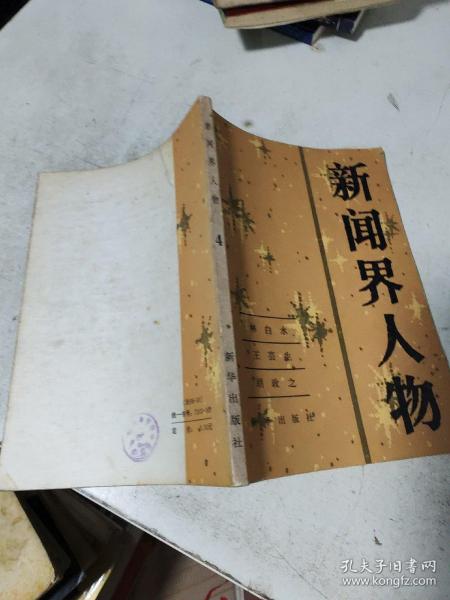 新闻界人物
林白水
王芸生
胡政之
新华出版社
新闻界人物
4
新华出版社
孔夫子旧书网
www.kongfz.com